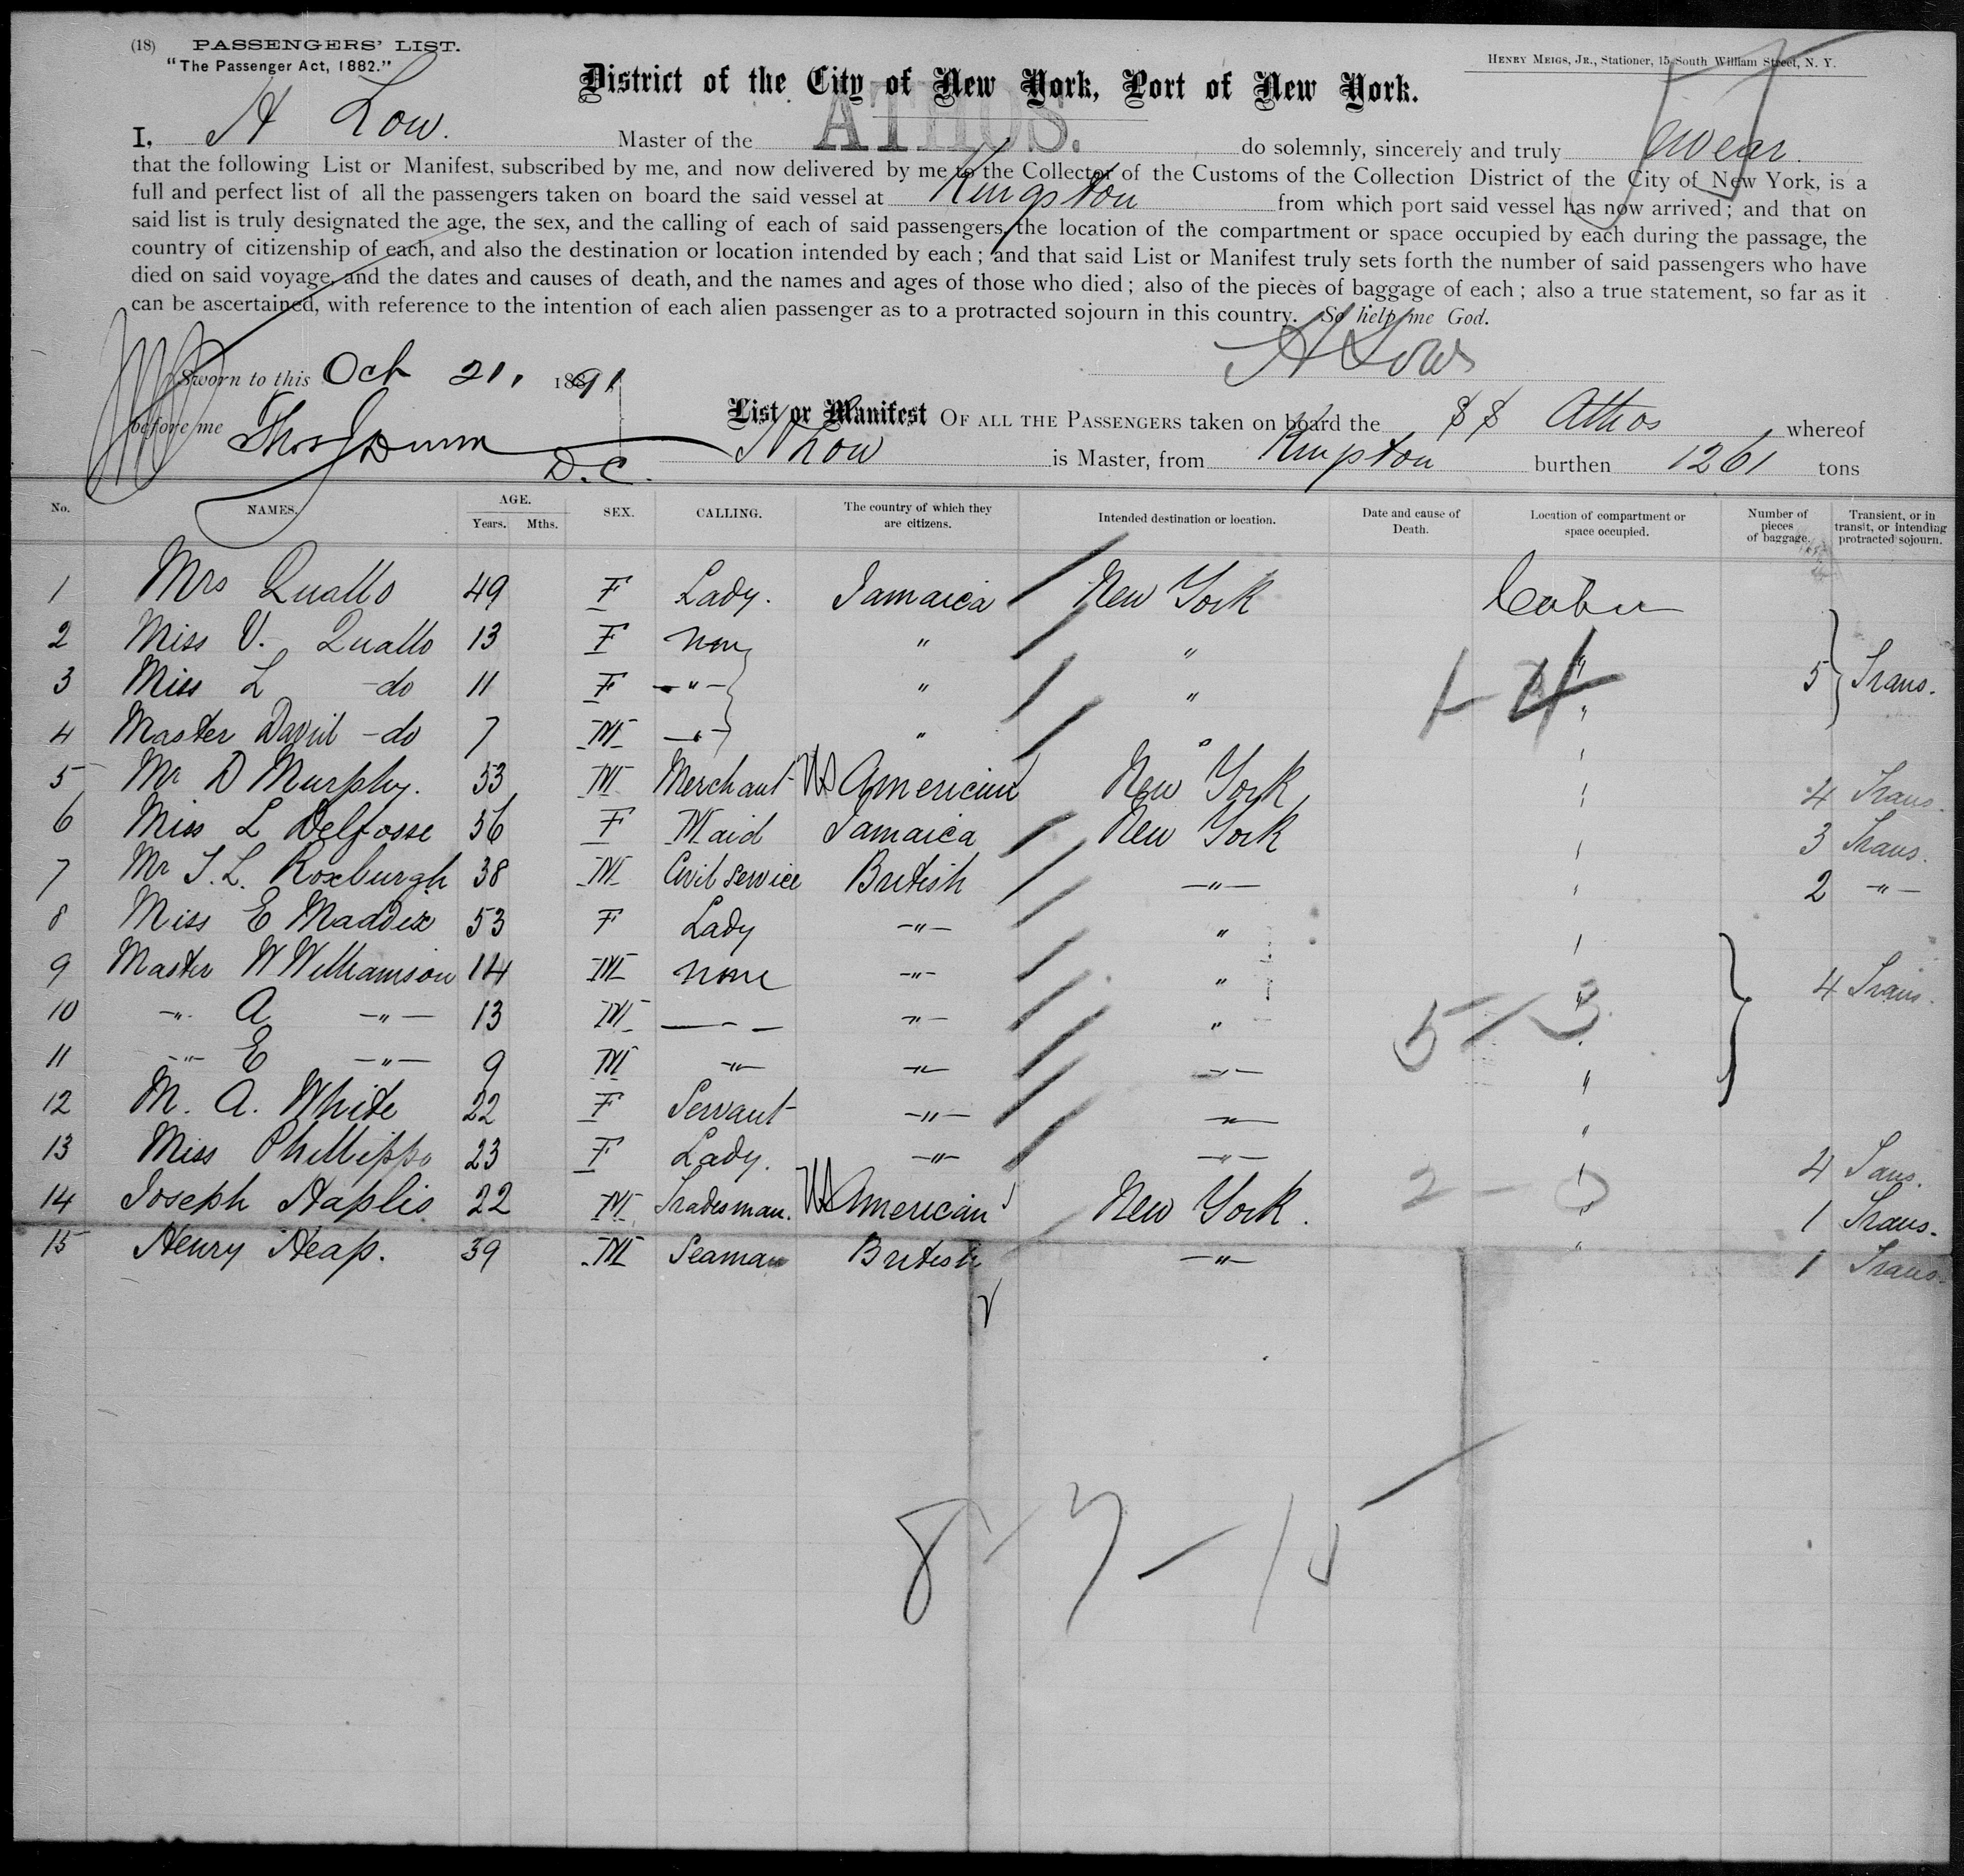 (18) PASSENGERS' LIST.
"The Passenger Act, 1882."
HENRY MEIGS, JR., Stationer, 15 South William Street, N. Y.
District of the City of New York, Port of New York.
I, A Low. Master of the ATHOS. do solemnly, sincerely and truly swear.
that the following List or Manifest, subscribed by me, and now delivered by me to the Collector of the Customs of the Collection District of the City of New York, is a
full and perfect list of all the passengers taken on board the said vessel at Kingston from which port said vessel has now arrived; and that on
said list is truly designated the age, the sex, and the calling of each of said passengers, the location of the compartment or space occupied by each during the passage, the
country of citizenship of each, and also the destination or location intended by each; and that said List or Manifest truly sets forth the number of said passengers who have
died on said voyage, and the dates and causes of death, and the names and ages of those who died; also of the pieces of baggage of each; also a true statement, so far as it
can be ascertained, with reference to the intention of each alien passenger as to a protracted sojourn in this country. So help me God.
A Low
Sworn to this Oct 21, 1891
before me Thos J Dunn D.C.
List or Manifest OF ALL THE PASSENGERS taken on board the SS Athos whereof
A Low is Master, from Kingston burthen 1261 tons
No. NAMES. AGE. Years. Mths. SEX. CALLING. The country of which they are citizens. Intended destination or location. Date and cause of Death. Location of compartment or space occupied. Number of pieces of baggage. Transient, or in transit, or intending protracted sojourn.
1 Mrs Quallo 49 F Lady. Jamaica New York Cabin
2 Miss V. Quallo 13 F non " "
3 Miss L -do 11 F -"- " " " 5 Trans.
4 Master David -do 7 M -"- " " "
5 Mr D Murphy. 53 M Merchant US American New York 4 Trans.
6 Miss L Delfosse 56 F Maid Jamaica New York 3 Trans.
7 Mr T. L. Roxburgh 38 M Civil Service British -"- 2 -"-
8 Miss E Maddix 53 F Lady -"- "
9 Master W Williamson 14 M none -"- " 4 Trans.
10 -"- A -"- 13 M -"- "
11 -"- E -"- 9 M -"- -"- -"- "
12 M. A. White 22 F Servant -"- -"- "
13 Miss Phillippo 23 F Lady. -"- -"- 4 Trans.
14 Joseph Naplis 22 M Tradesman. US American New York. 1 Trans.
15 Henry Heap. 39 M Seaman British -"- " 1 Trans.
5 - 3
2 - 0
8 - 7 - 15